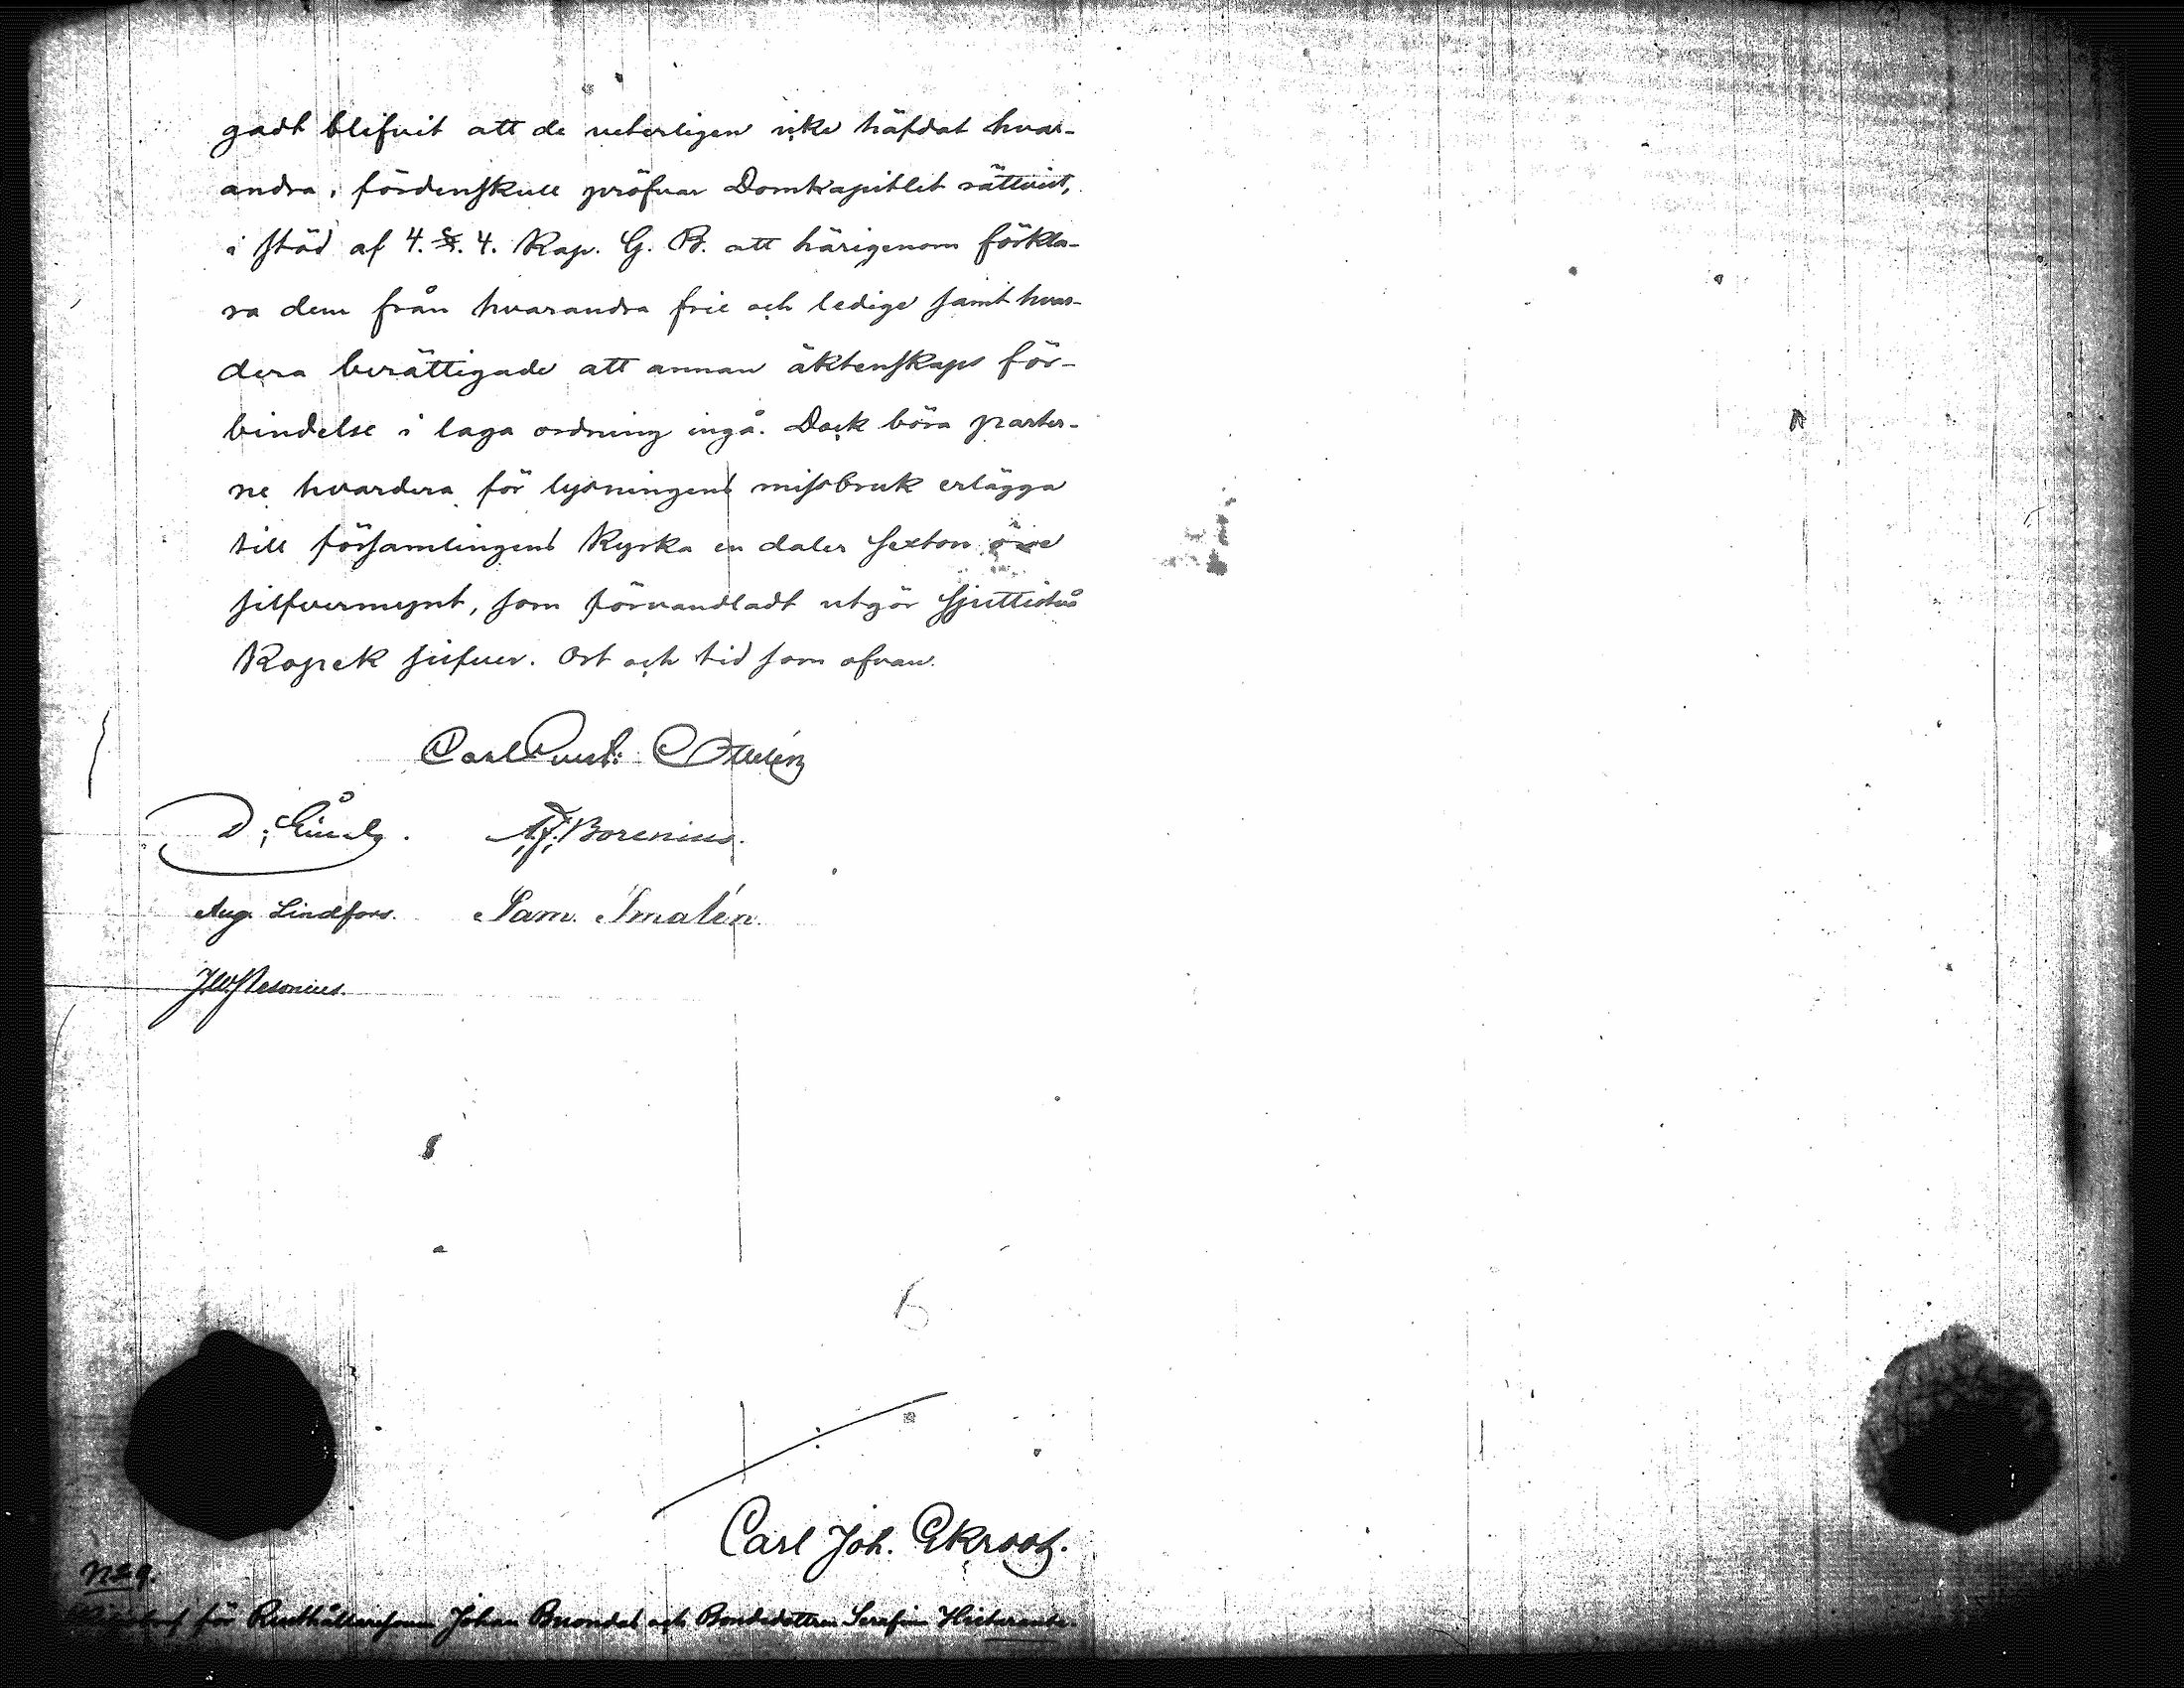 gadt blifvit att de veterligen icke häfdat hvar-
andra, fördenskull pröfvar Domkapitlet rättvist,
i stöd af 4. §. 4. Kap. G. B. att härigenom förkla-
ra dem från hvarandra frie och ledige samt hvar-
dera berättigade att annan äktenskaps för-
bindelse i laga ordning ingå. Dock böra parter-
ne hvardera för lysningens missbruk erlägga
till församlingens Kyrka en daler sexton öre
silfvermynt, som förvandladt utgör sjuttiotvå
Kopek silfver. Ort och tid som ofvan.
Carl Gust: Ottelin
A. F. Borenius.
Aug. Lindfors. Sam. Smalén.
Carl Joh. Ekroos.
N:o 9.
för Rusthållaresonen Johan och Bondedottren Serafin